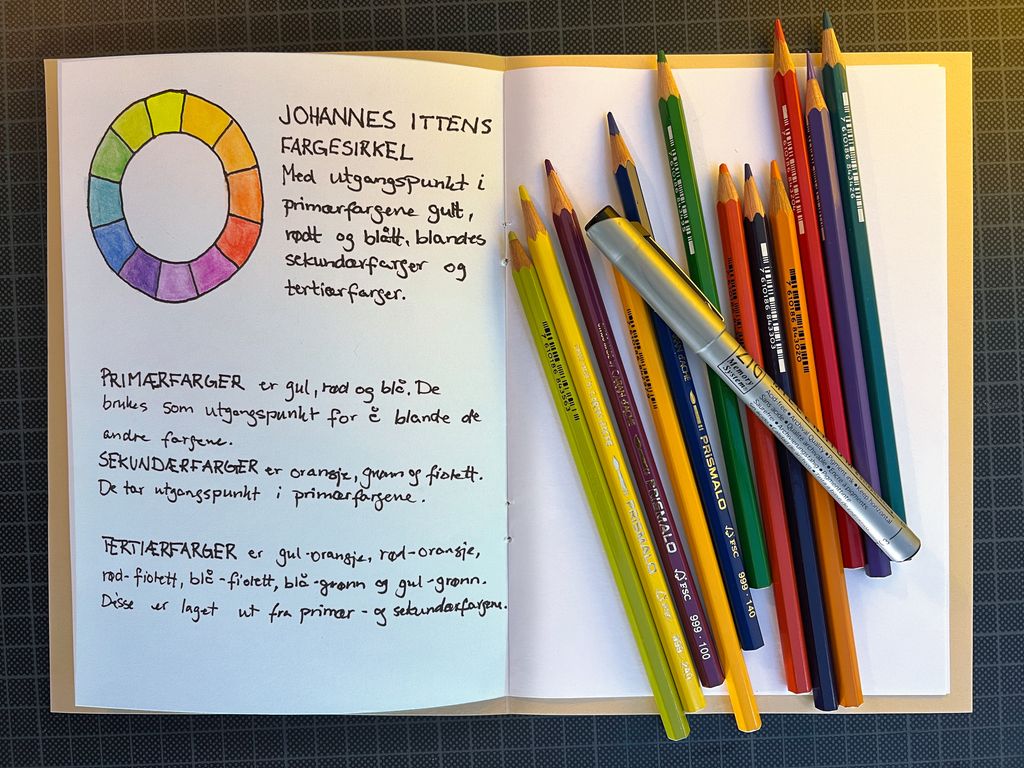 JOHANNES ITTENS
FARGESIRKEL
Med utgangspunkt i
primærfargene gult,
rødt og blått, blandes
sekundærfarger og
tertiærfarger.
PRIMÆRFARGER er gul, rød og blå. De
brukes som utgangspunkt for å blande de
andre fargene.
SEKUNDÆRFARGER er oransje, grønn og fiolett.
De tar utgangspunkt i primærfargene.
TERTIÆRFARGER er gul-oransje, rød-oransje,
rød-fiolett, blå-fiolett, blå-grønn og gul-grønn.
Disse er laget ut fra primær- og sekundærfargene.
PRISMALO FSC 999·140
PRISMALO FSC 999·100
PRISMALO 999·240
Memory
System
7 610186 843563
7 610186 843303
7 610186 843020